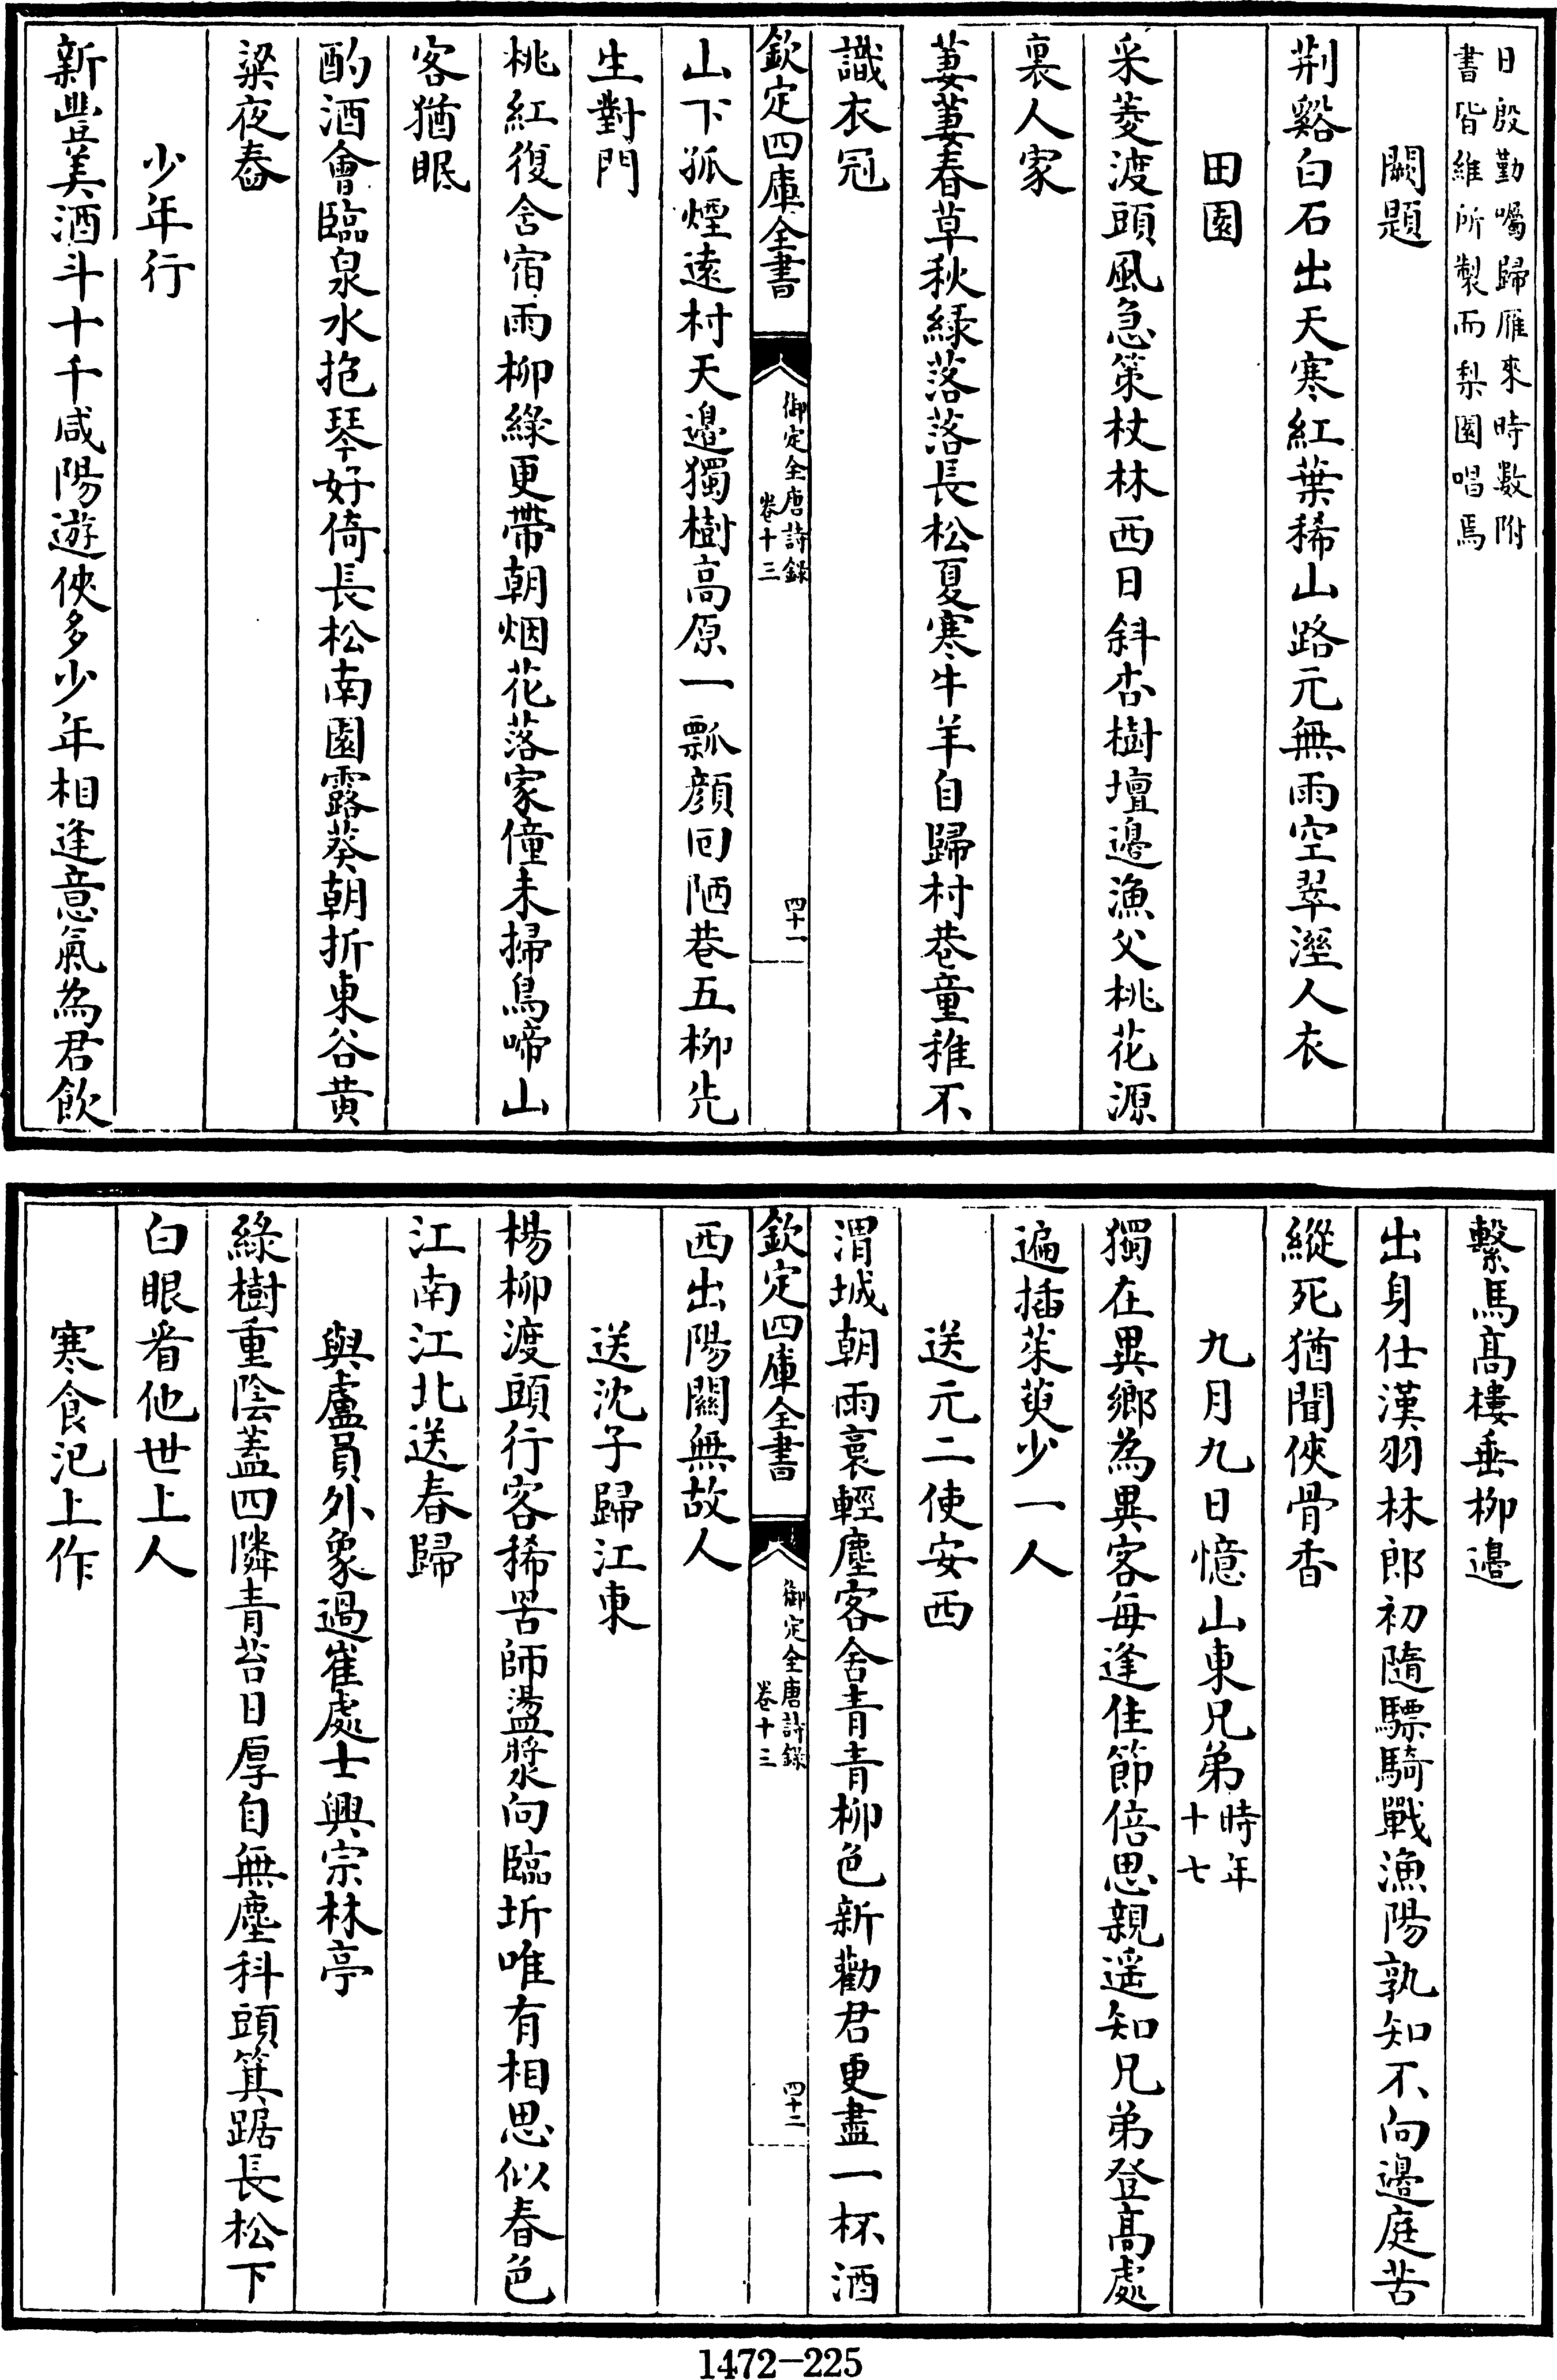 日殷勤囑歸雁來時數附
書皆維所製而梨園唱焉
闕題
荆谿白石出天寒紅葉稀山路元無雨空翠溼人衣
田園
采菱渡頭風急策杖林西日斜杏樹壇邉漁父桃花源
裏人家
萋萋春草秋緑落落長松夏寒牛羊自歸村巷童稚不
識衣冠
欽定四庫全書
御定全唐詩録
卷十三
四十一
山下孤煙逺村天邉獨樹高原一瓢顔囘陋巷五柳先
生對門
桃紅復含宿雨柳綠更帶朝烟花落家僮未掃鳥啼山
客猶眠
酌酒會臨泉水抱琴好倚長松南園露葵朝折東谷黄
粱夜舂
少年行
新豐美酒斗十千咸陽遊俠多少年相逢意氣為君飲
繫馬髙樓垂柳邉
出身仕漢羽林郎初隨驃騎戰漁陽孰知不向邉庭苦
縱死猶聞俠骨香
九月九日憶山東兄弟
時年
十七
獨在異鄉為異客每逢佳節倍思親遥知兄弟登髙處
遍插茱萸少一人
送元二使安西
渭城朝雨裛輕塵客舍青青柳色新勸君更盡一杯酒
欽定四庫全書
御定全唐詩録
卷十三
四十二
西出陽關無故人
送沈子歸江東
楊柳渡頭行客稀罟師盪槳向臨圻唯有相思似春色
江南江北送春歸
與盧員外象過崔處士興宗林亭
綠樹重陰蓋四隣青苔日厚自無塵科頭箕踞長松下
白眼看他世上人
寒食汜上作
1472-225